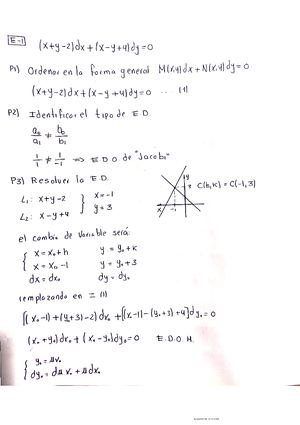 E-1 (x+y-2)dx+(x-y+4)dy=0
P1) Ordenar en la forma general M(x,y)dx+N(x,y)dy=0
(x+y-2)dx+(x-y+4)dy=0 .... (1)
P2) Identificar el tipo de E.D.
a₀/a₁ ≠ b₀/b₁
1/1 ≠ 1/-1 => E.D.O de "Jacobi"
P3) Resolver la E.D.
L₁: x+y-2 } x=-1
L₂: x-y+4 } y=3
C(h,k)=C(-1,3)
y
3
x -1
el cambio de variable será:
{ x=x₀+h y=y₀+k
{ x=x₀-1 y=y₀+3
dx=dx₀ dy=dy₀
remplazando en =(1)
[(x₀-1)+(y₀+3)-2]dx₀+[(x₀-1)-(y₀+3)+4]dy₀=0
(x₀+y₀)dx₀+(x₀-y₀)dy₀=0 E.D.O.H.
{ y₀=ux₀
{ dy₀=du x₀+u dx₀